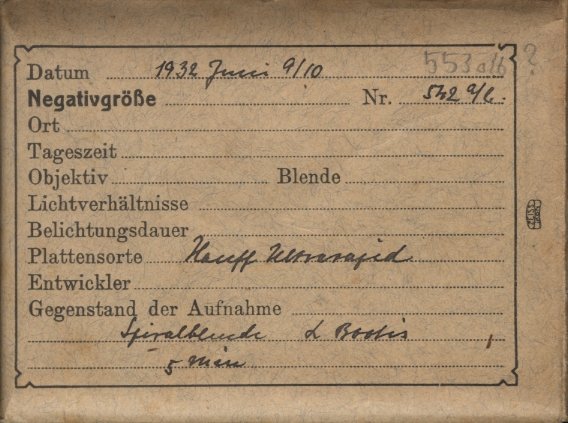 553 a/b ?
Datum 1932 Juni 9/10
Negativgröße Nr. 542 a/b.
Ort
Tageszeit
Objektiv Blende
Lichtverhältnisse
Belichtungsdauer
Plattensorte Hauff Ultrarapid
Entwickler
Gegenstand der Aufnahme
Spiralblende α Bootis
5 Min